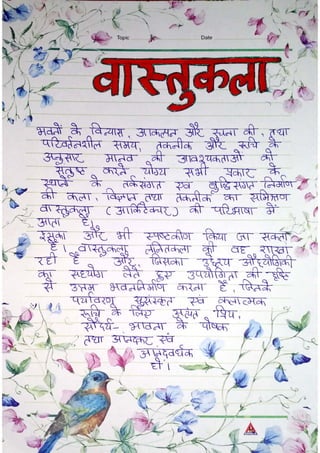 Topic Date
वास्तुकला
भवनों के विन्यास, आकल्पन और रचना की, तथा
परिवर्तनशील समय, तकनीक और रूचि के
अनुसार मानव की आवश्यकताओं को
संतुष्ट करने योग्य सभी प्रकार के
स्थानों के तर्कसंगत एवं बुद्धिसंगत निर्माण
की कला, विज्ञान तथा तकनीक का संमिश्रण
वास्तुकला (आर्किटेक्चर) की परिभाषा में
आता है।
इसका और भी स्पष्टीकरण किया जा सकता
है। वास्तुकला ललितकला की वह शाखा
रही है और, जिसका उद्देश्य औद्योगिकी
का सहयोग लेते हुए उपयोगिता की दृष्टि
से उत्तम भवननिर्माण करना है, जिनके
पर्यावरण सुसंस्कृत एवं कलात्मक
रूचि के लिए अत्यंत प्रिय,
सौंदर्य- भावना के पोषक
तथा आनंदकर एवं
आनंदवर्धक
हों।